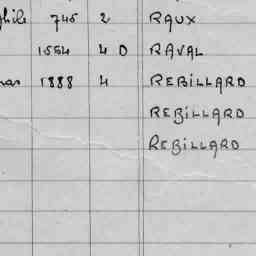 phile 746 2 RAUX
1554 4 D RAVAL
1888 4 REBILLARD
REBILLARD
REBILLARD